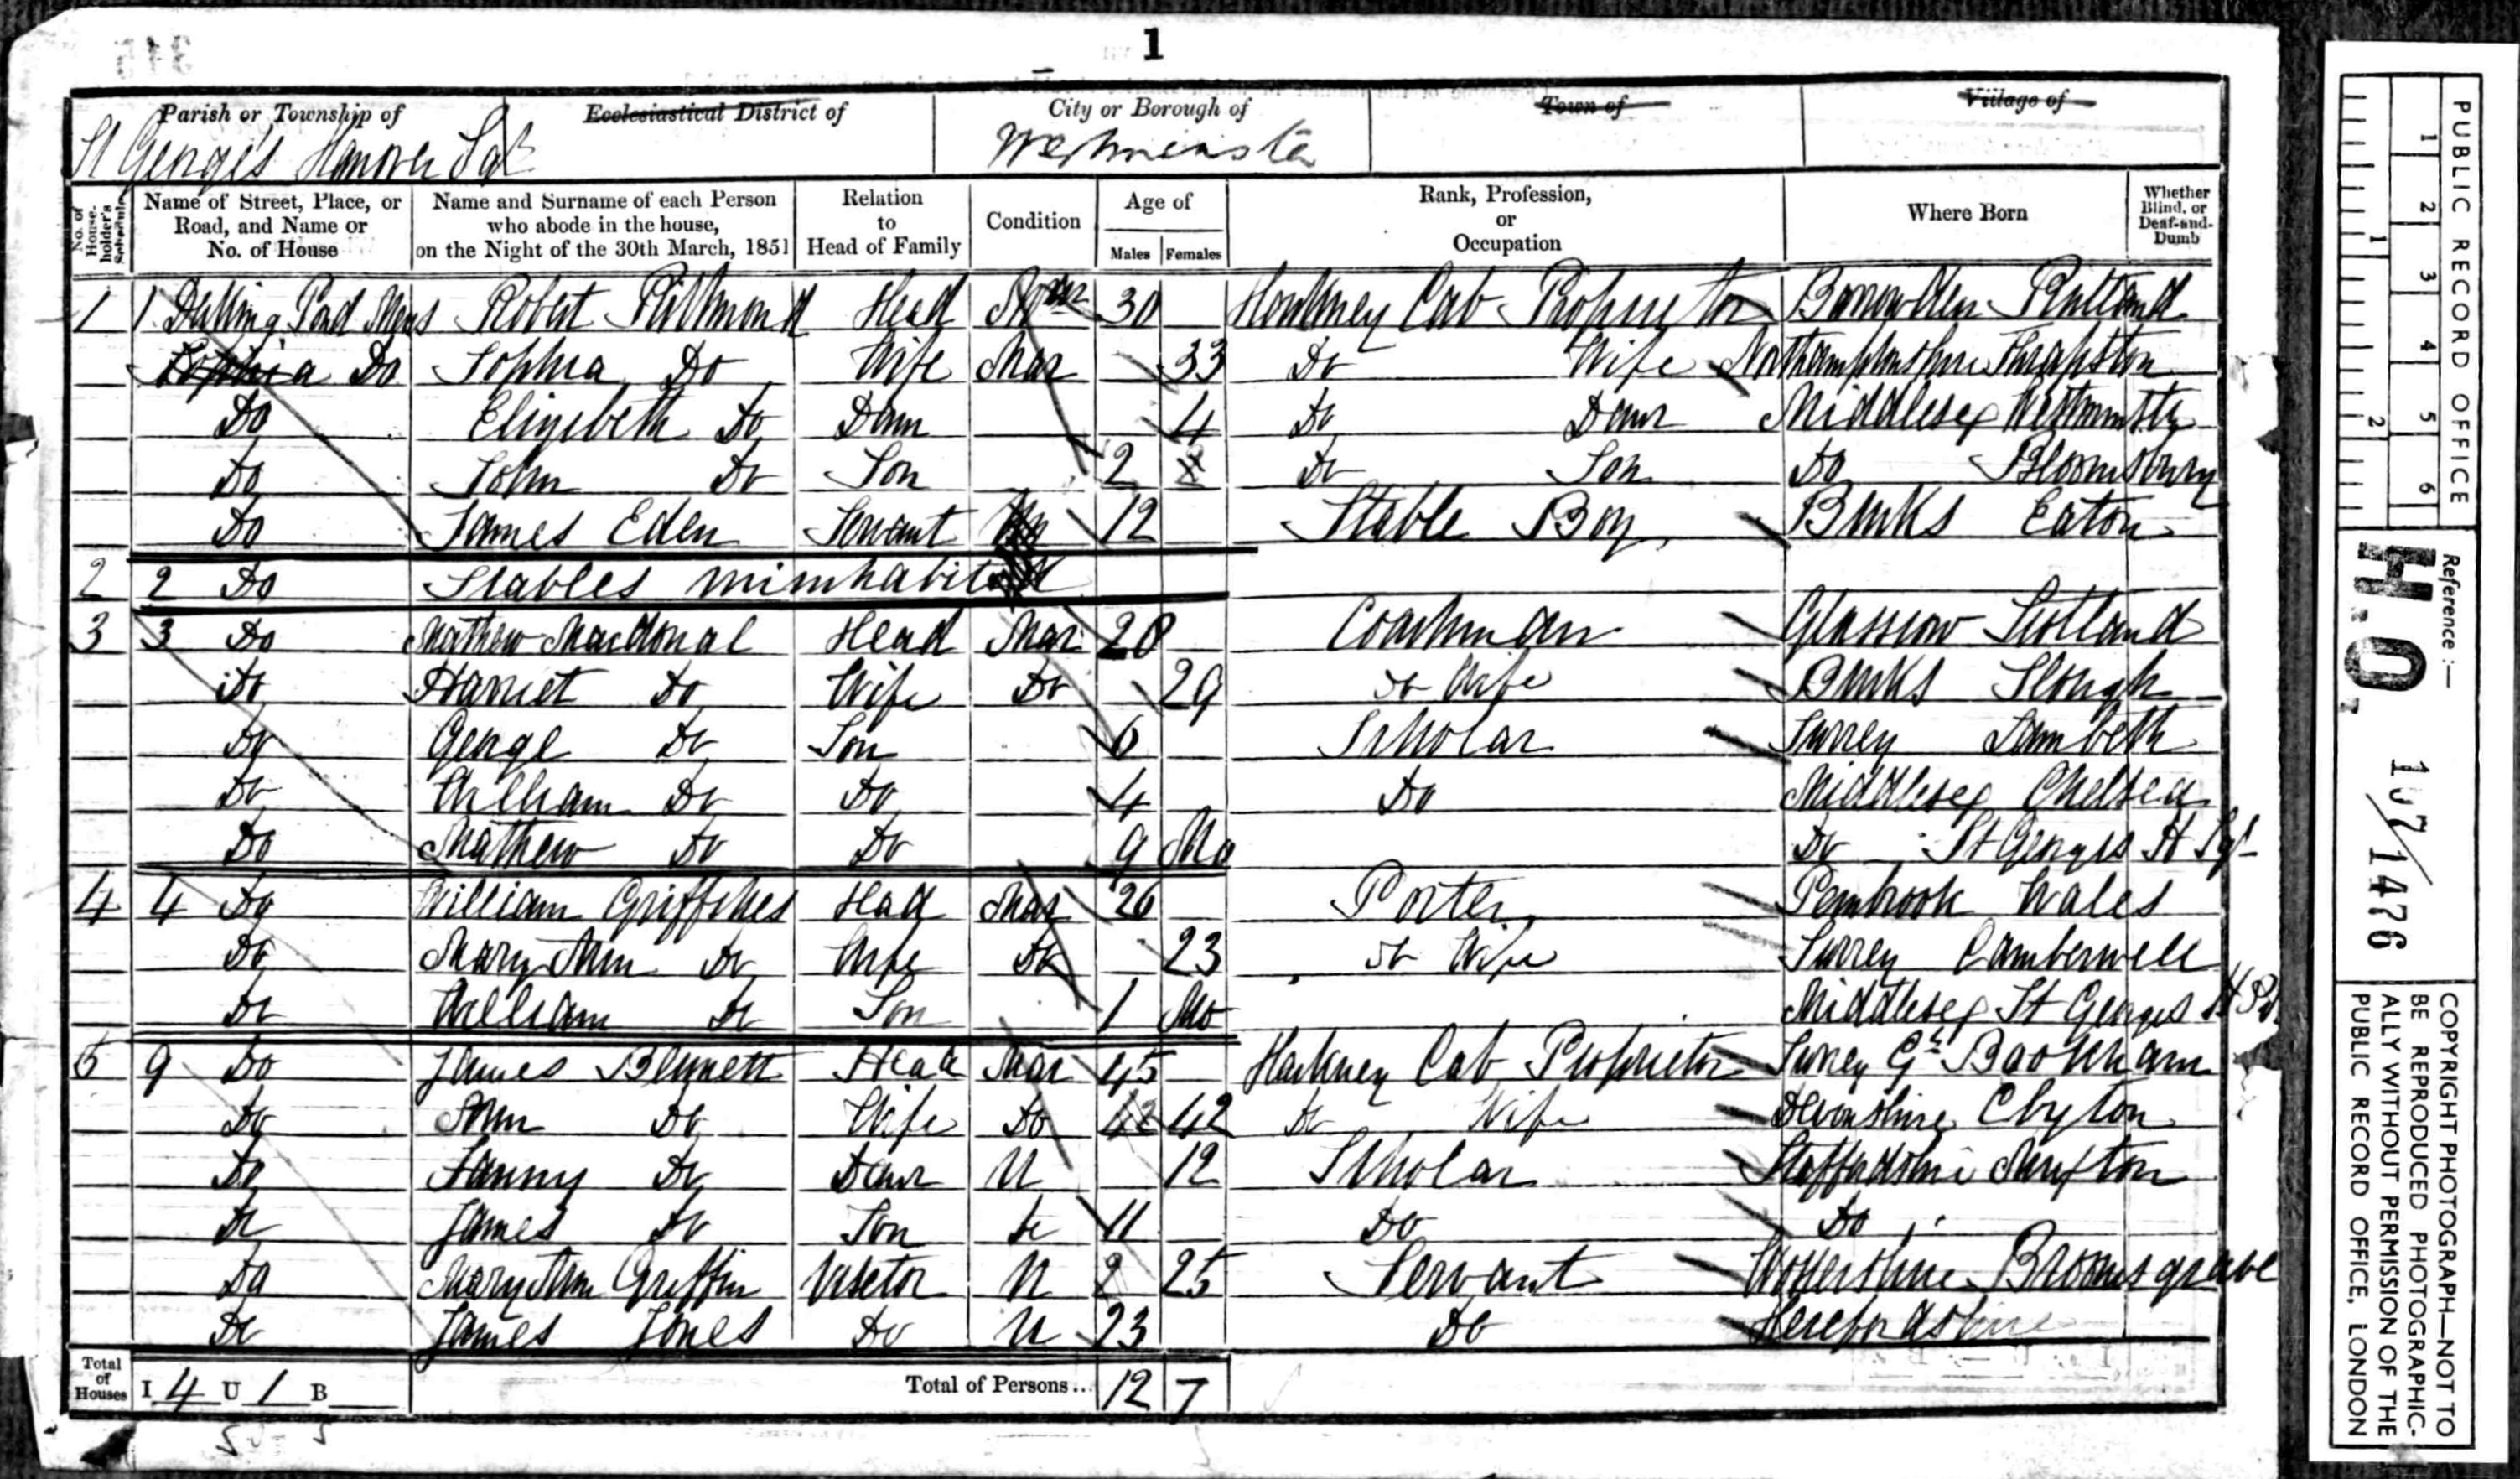 1
Parish or Township of
Ecclesiastical District of
City or Borough of
Town of
Village of
St Georges Hanover Sqr
Westminster
No. of House-holder's Schedule
Name of Street, Place, or Road, and Name or No. of House
Name and Surname of each Person who abode in the house, on the Night of the 30th March, 1851
Relation to Head of Family
Condition
Age of
Males Females
Rank, Profession, or Occupation
Where Born
Whether Blind, or Deaf-and-Dumb
1 1 Mews Robert Head Mar 30 Hackney Cab Proprietor Barrowden Rutland
Sophia Do Sophia Do Wife Mar 33 Do Wife Northamptonshire Thrapston
Do Elizebeth Do Daur 4 Do Daur Middlesex Westminster
Do John Do Son 2 Do Son Do Bloomsbury
Do James Eden Servant 12 Stable Boy Bucks Eaton
2 2 Do Stables uninhabited
3 3 Do Mathew Macdonal Head Mar 28 Coachman Glassgow Scotland
Do Harriet Do Wife Do 29 Do Wife Bucks Slough
Do George Do Son 6 Scholar Surrey Lambeth
Do William Do Do 4 Do Middlesex Chelsea
Do Mathew Do Do 9 Mo Do St Georges H Sqr
4 4 Do William Griffithes Head Mar 26 Porter Pembrook Wales
Do Mary Ann Do Wife Do 23 Do Wife Surrey Camberwell
Do William Do Son 1 Mo Middlesex St Georges H Sq
5 9 Do James Bennett Head Mar 45 Hackney Cab Proprietor Surrey Gt Bookham
Do Ann Do Wife Do 42 Do Wife Devonshire Clyton
Do Fanny Do Daur U 12 Scholar Staffordshire
Do James Do Son Do 11 Do Do
Do Mary Ann Griffin Visetor U 25 Servant Bromsgrove
Do James Jones Do U 23 Do Herefordshire
Total of Houses I 4 U 1 B Total of Persons... 12 7
PUBLIC RECORD OFFICE
1 2 3 4 5 6
1 2
Reference :—
H.O. 107/1476
COPYRIGHT PHOTOGRAPH—NOT TO
BE REPRODUCED PHOTOGRAPHIC-
ALLY WITHOUT PERMISSION OF THE
PUBLIC RECORD OFFICE, LONDON